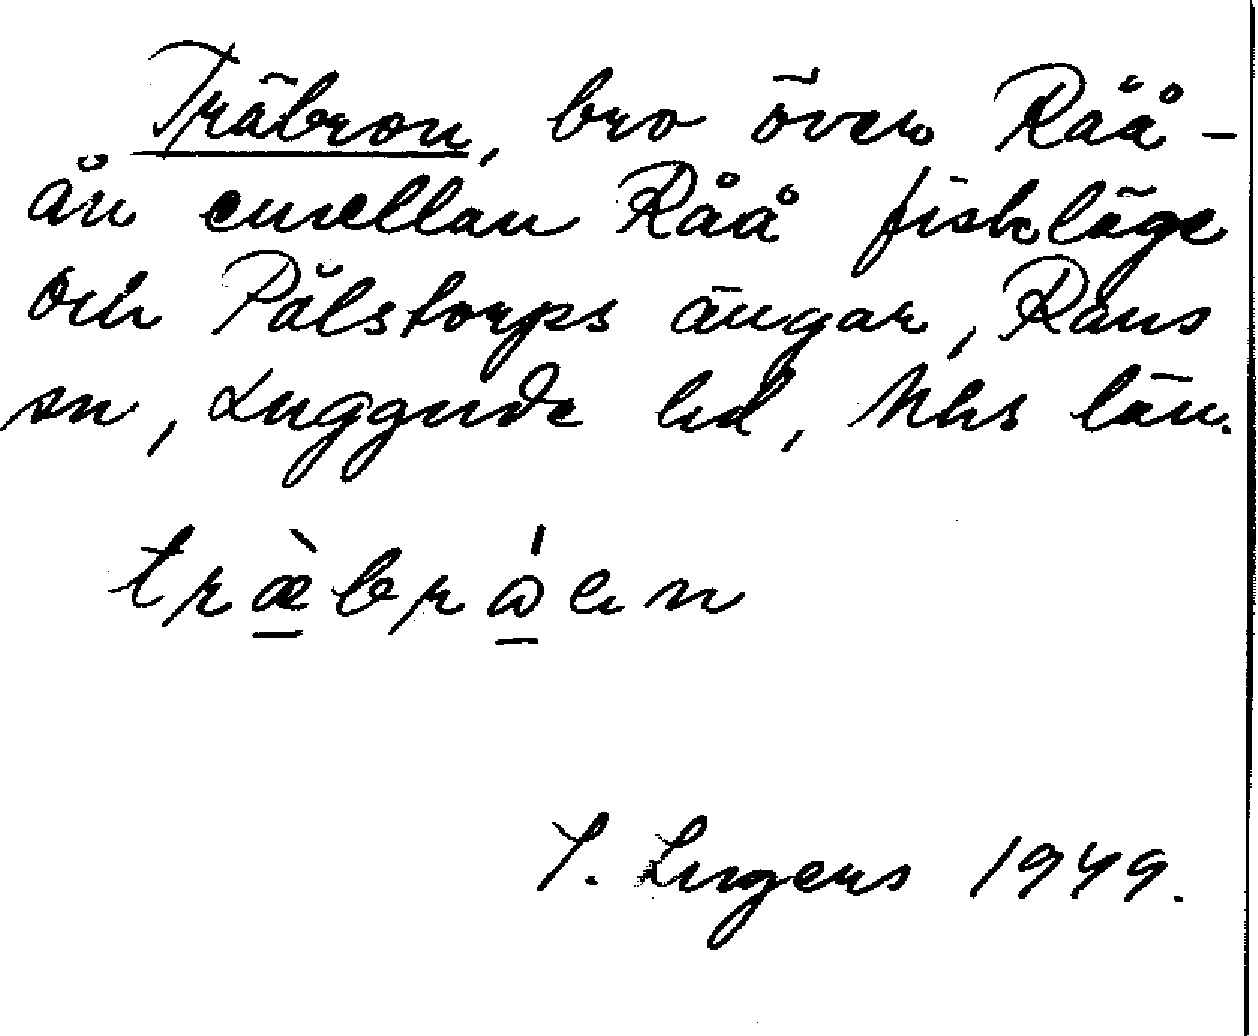 Träbron, bro över Råå-
ån emellan Råå fiskläge
och Pålstorps ängar, Raus
sn, Luggude hd, Mhs län.
træ̀brǻen
Lugers 1949.